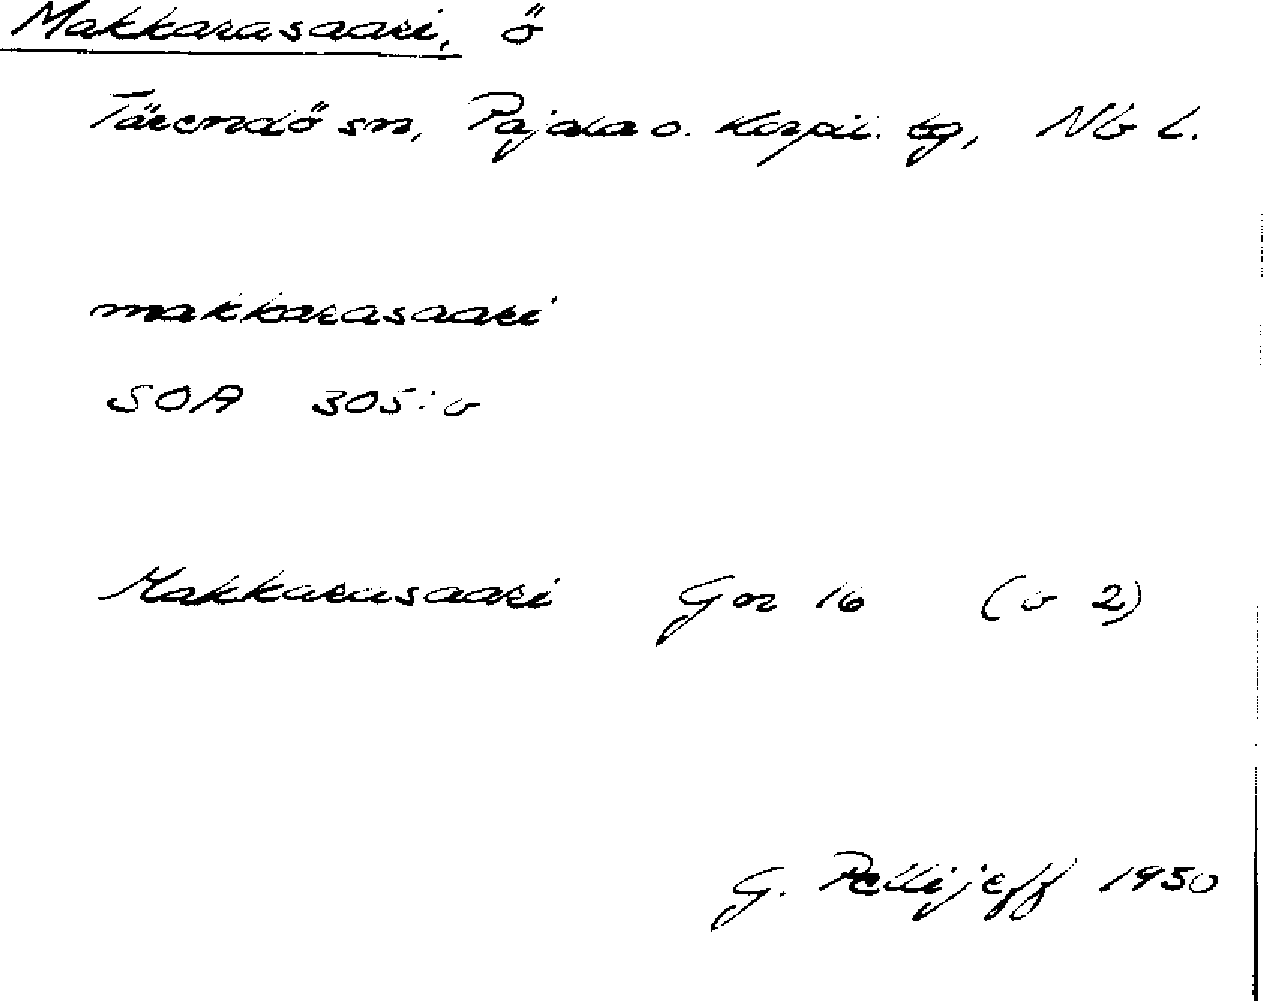 Makkarasaari, ö
Tärendö sn, Pajala o. Korpil. tg, Nb l.
makkarasaari
SOA 305:v
Makkarasaari Gn 16 (v 2)
G. Pellijeff 1950